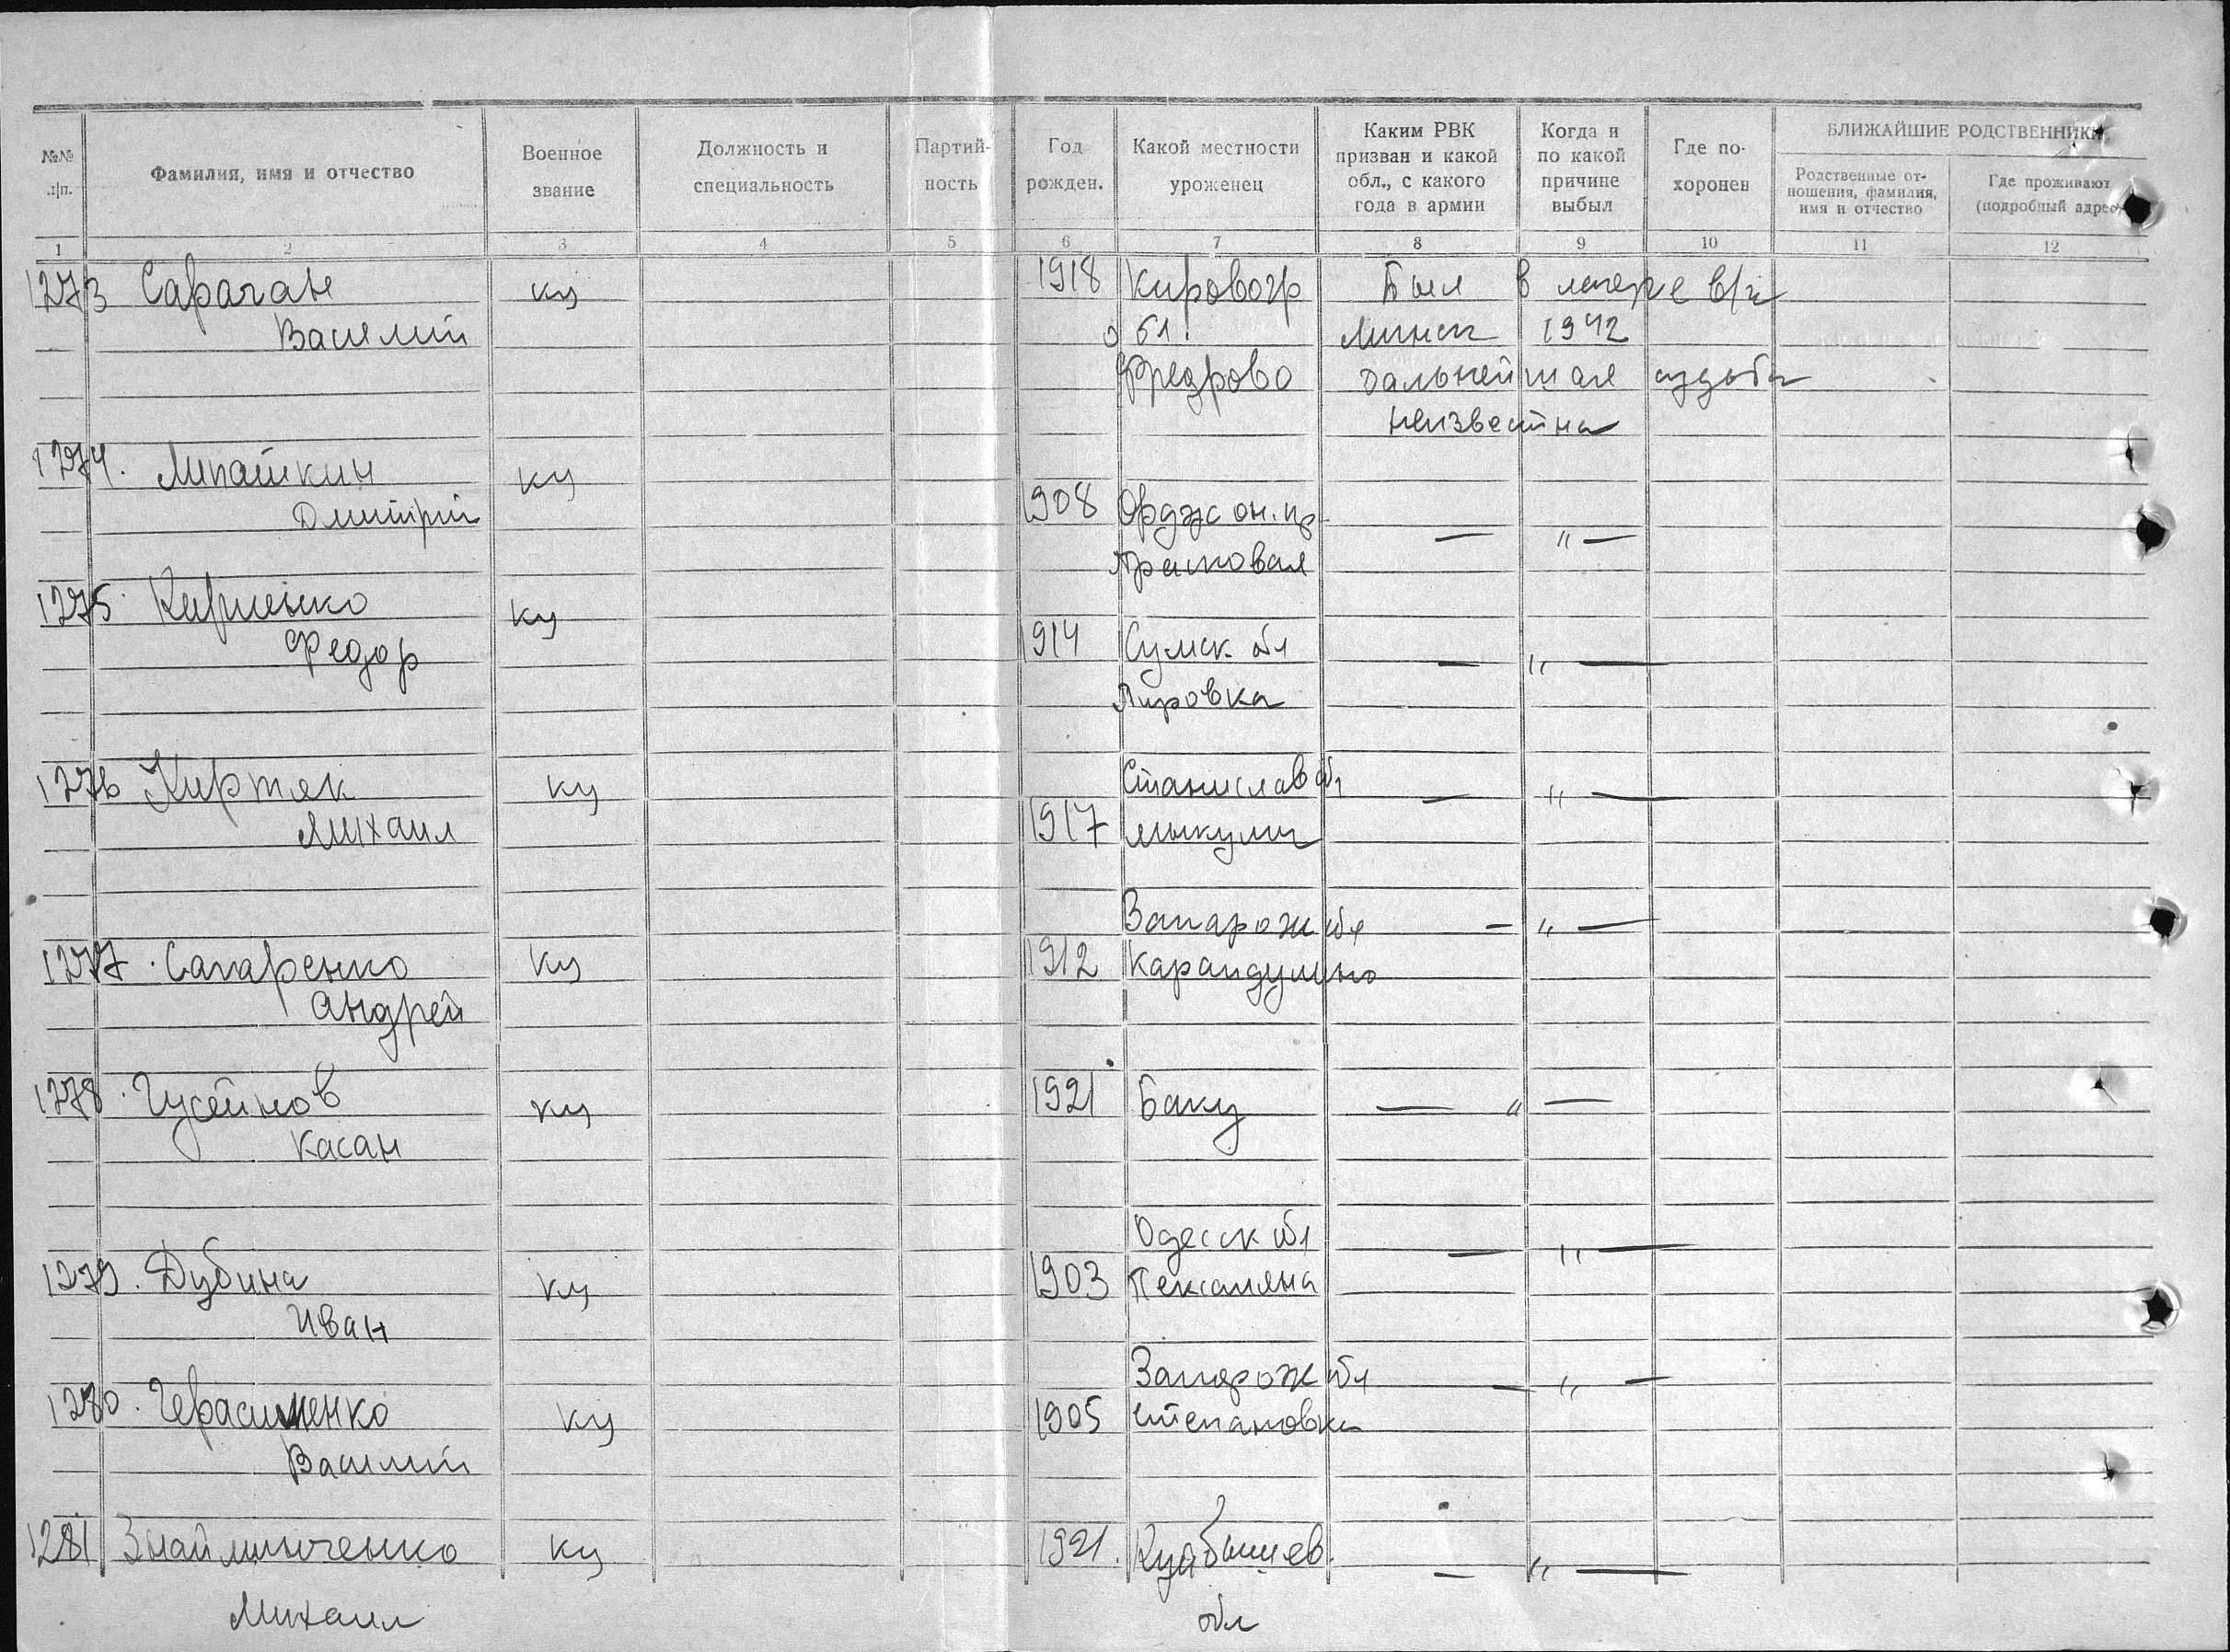 №№ п/п.
Фамилия, имя и отчество
Военное звание
Должность и специальность
Партийность
Год рожден.
Какой местности уроженец
Каким РВК призван и какой обл., с какого года в армии
Когда и по какой причине выбыл
Где похоронен
БЛИЖАЙШИЕ РОДСТВЕННИКИ
Родственные отношения, фамилия, имя и отчество
Где проживают (подробный адрес)
1 2 3 4 5 6 7 8 9 10 11 12
1273 Сарачан ку 1918 Кировогр Был в лагере в/п
Василий обл. Минск 1942
Федрово дальнейшая судьба
неизвестна
1274. Липаткин ку
Дмитрий 1908 Орджон. кр — " —
1275. Кириенко ку
Федор 1914 Сумск. обл — " —
Пировка
1276 Киртяк ку Станислав обл — " —
Михаил 1917 Микули
Запарож обл — " —
1277. Сапаренко ку 1912
Андрей
1278. Гусейнов ку 1921 Баку — " —
Касан
Одесск обл — " —
1279. Дубина ку 1903
Иван
Запорож обл — " —
1280. Герасименко ку 1905 Степановка
Василий
1281 ку 1921. Куйбышев. — " —
Михаил обл